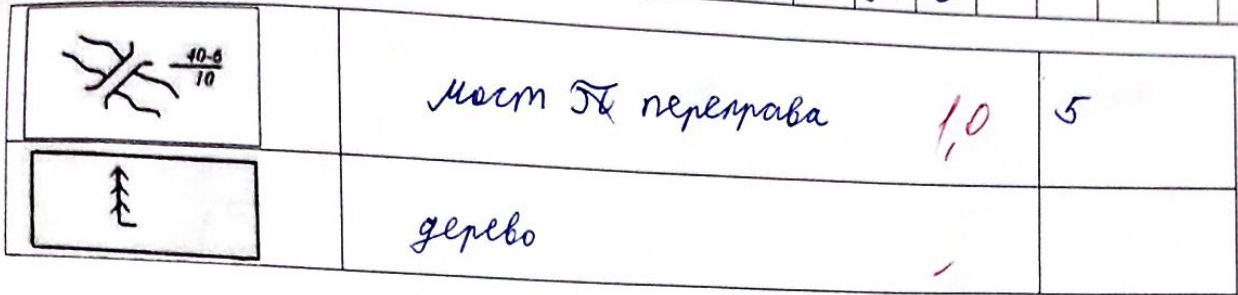 40-6
10
мост переправа 1,0 5
дерево